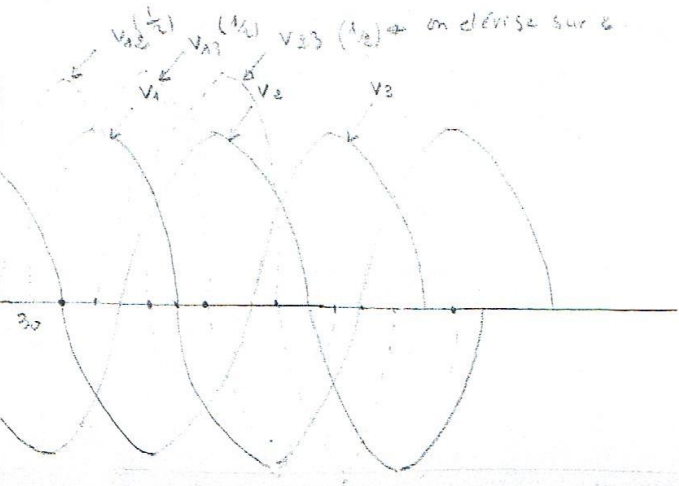 V12 (1/2) V13 (1/2) V23 (1/2) on dévise sur
V1 V2 V3
30